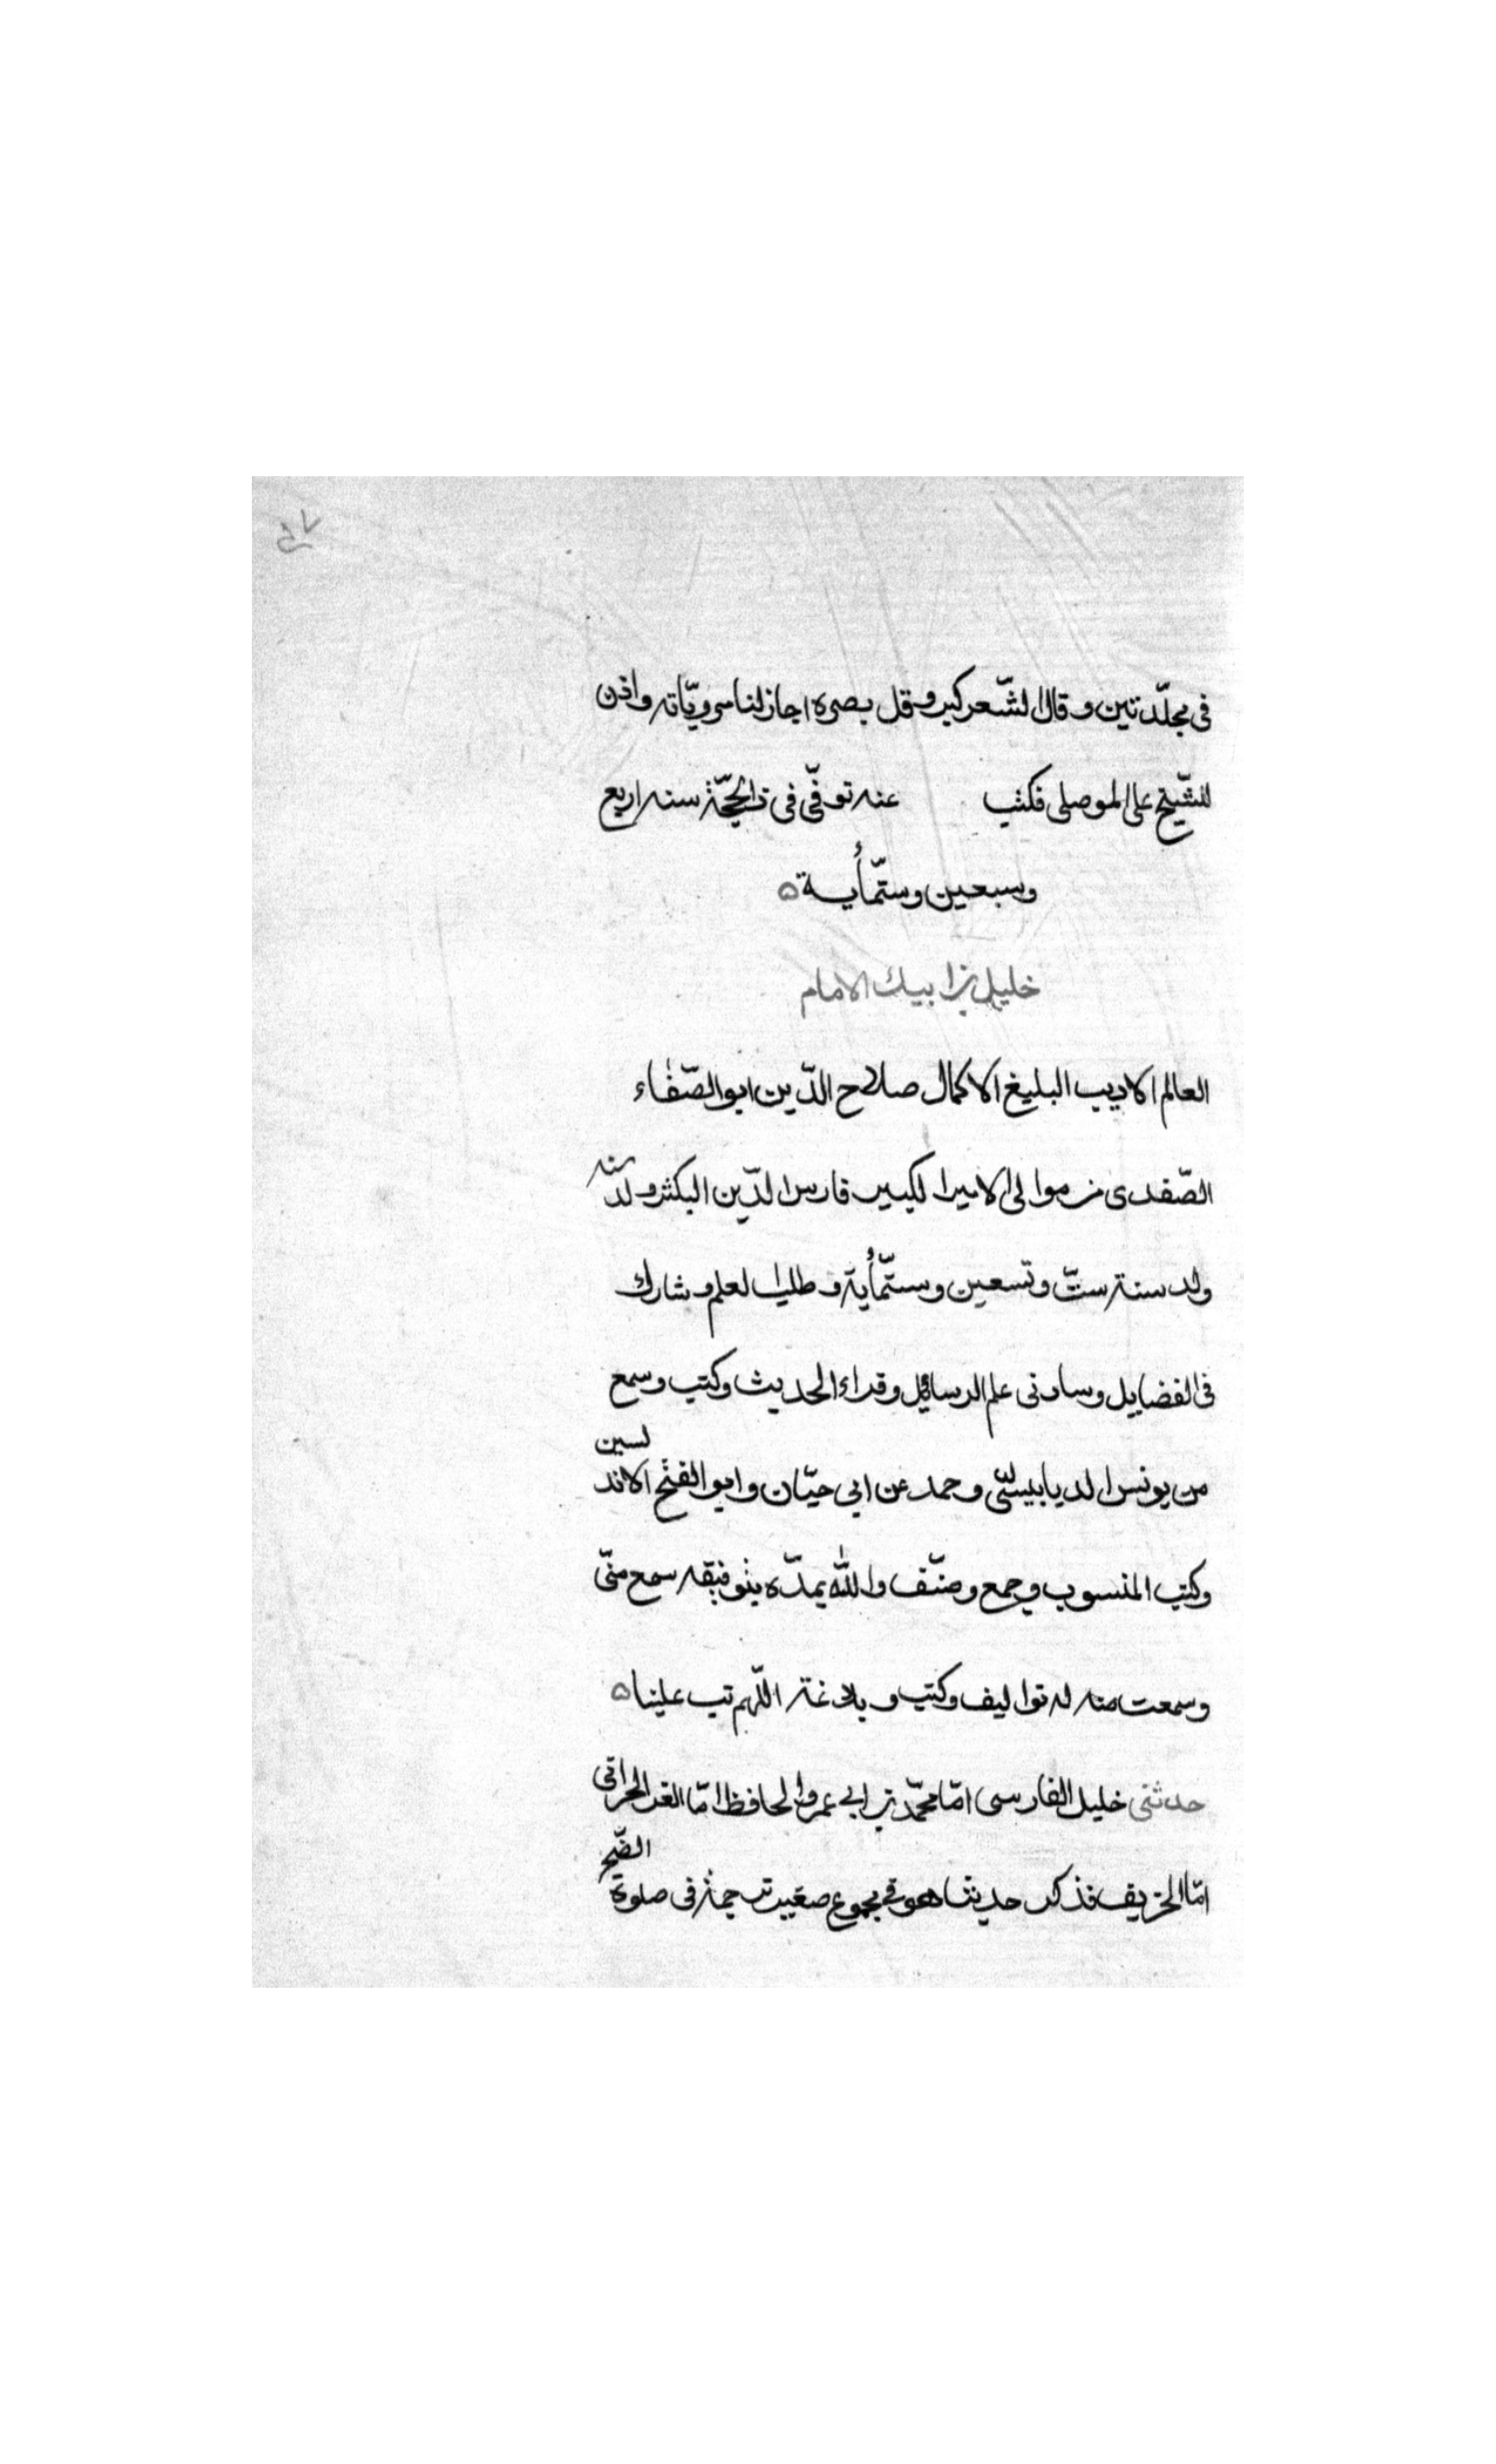 فى مجلّدتين وقال الشّعر كبر وقل بصره اجاز لنا مرويّاته واذن
للشّيخ على الموصلى فكتب عنه توفّى فى ذالحجّة سنه اربع
وسبعين وستّمأية ه
خليل بن ابيك الامام
العالم الاديب البليغ الاكمال صلاح الدّين ابوالصّفاء
الصّفدى من موالى الامير الكبير فارس الدّين البكثر ولد سنه
ولد سنة ستّ وتسعين وستّمأية وطلب العلم وشارك
فى الفضايل وساد فى علم الرسائل وقراء الحديث وكتب وسمع
من يونس الديابيسىّ وحمد عن ابى حيّان وابو الفتح الاندلسين
وكتب المنسوب وجمع وصنّف والله يمدّه بتوفيقه سمع منّى
وسمعت منه له تواليف وكتب وبلاغة اللّهم تب علينا ه
حدثنى خليل الفارسى امّا محمّد بن ابى عمرو الحافظ امّا الحراقى
امّا فذكر حديثا هو فى مجموع صغير ترجمة فى صلوة الضّحى